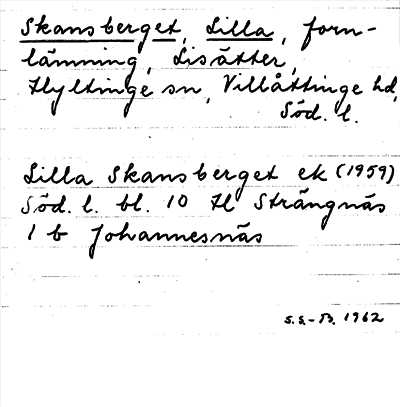 Skansberget, Lilla, forn-
lämning, Lisätter,
Hyltinge sn, Villåttinge hd,
Söd. l.
Lilla Skansberget ek (1959)
Söd. l. bl. 10 H Strängnäs
1 b Johannesnäs
S.S.-B. 1962